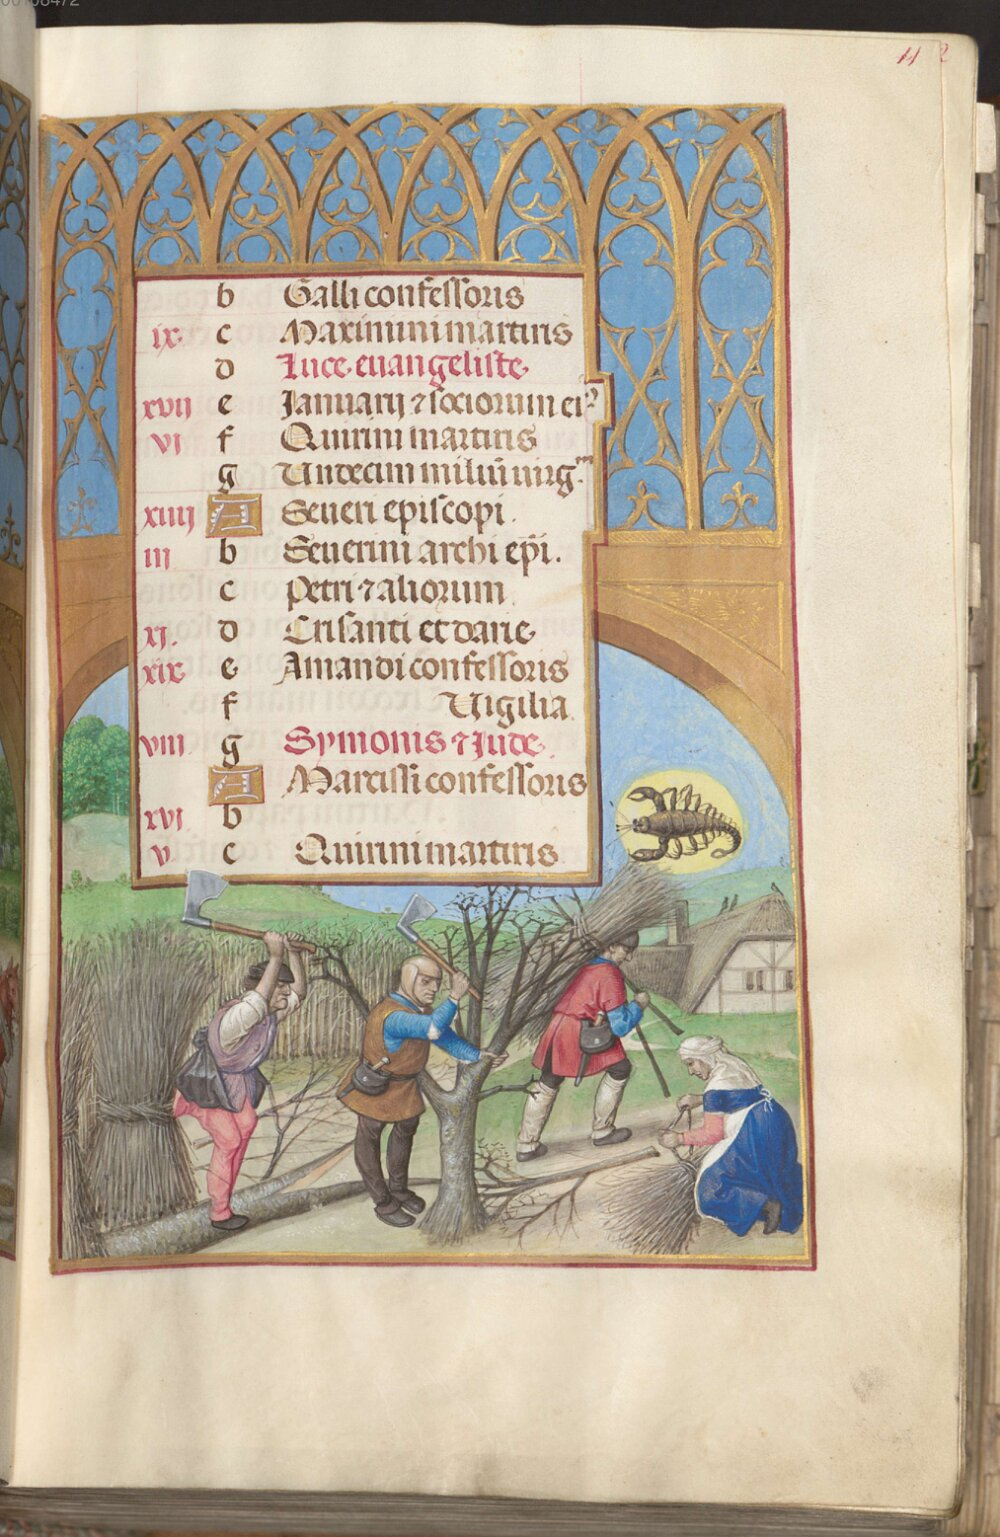 00108472
11 2
b Galli confessoris
ix c Maximini martiris
d Luce euangeliste
xvij e Januarij ⁊ sociorum ei⁹
vj f Quirini martiris
g Undecim miliū uirg.m
xiiij A Seueri episcopi.
iij b Seuerini archi ep̄i.
c Petri ⁊ aliorum
xj. d Crisanti et darie
xix e Amandi confessoris
f Vigilia
viij g Symonis ⁊ Jude
A Narcissi confessoris
xvj b
v c Quirini martiris